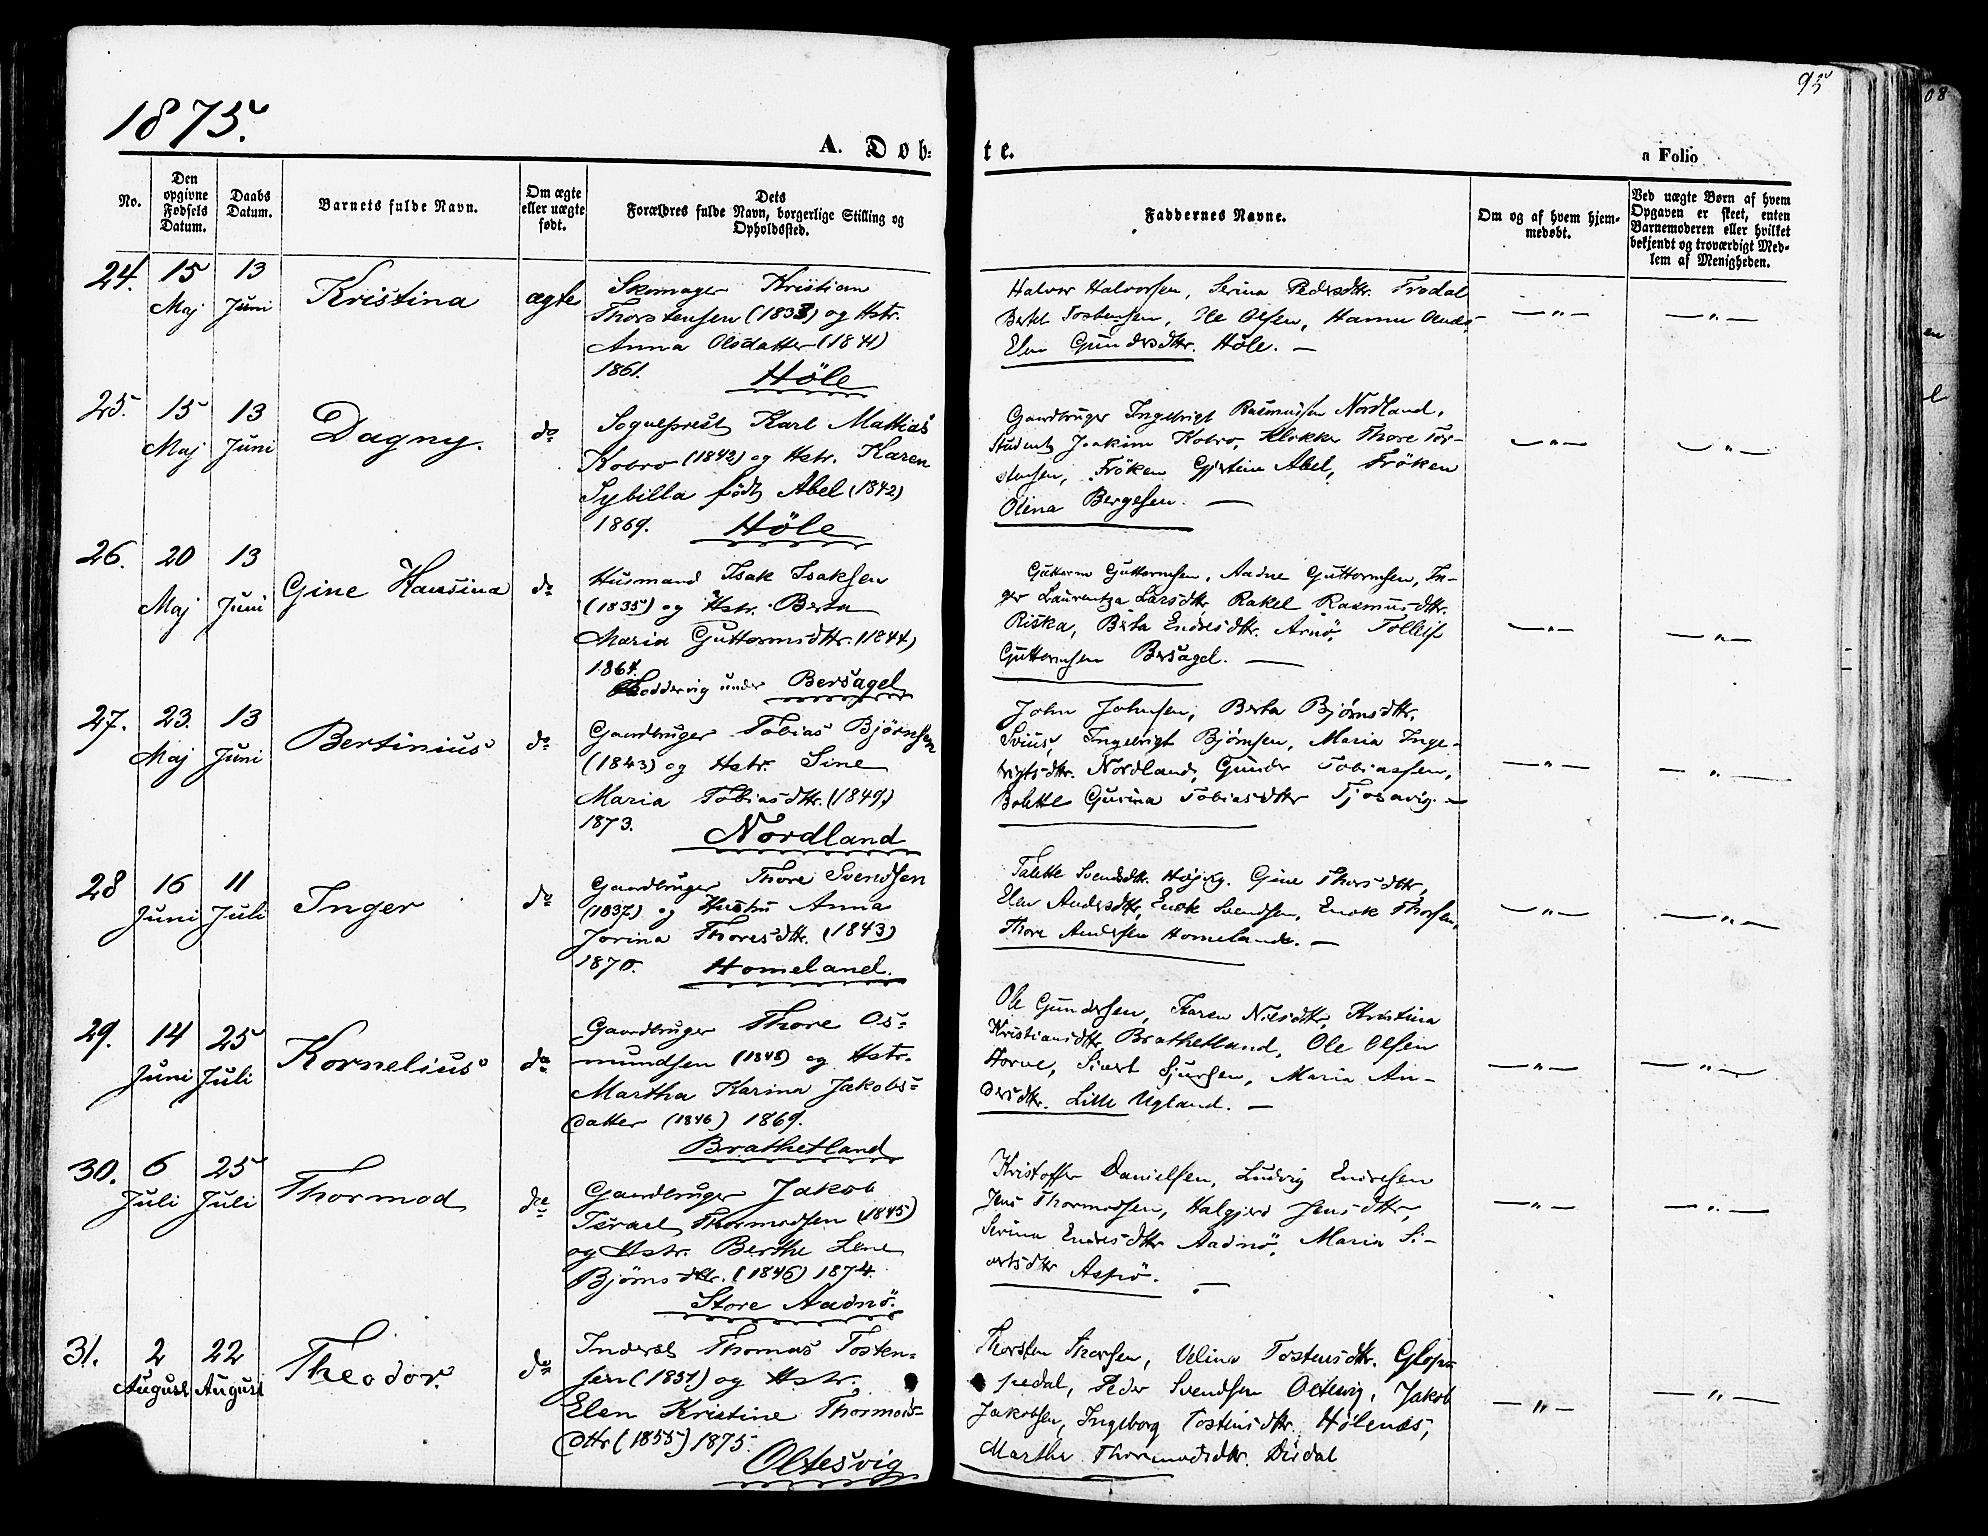 1875.
95
08
A. Døb-
te.
a Folio
No.
Den
opgivne
Fødsels
Datum.
Daabs
Datum.
Barnets fulde Navn.
Om ægte
eller uægte
født.
Dets
Forældres fulde Navn, borgerlige Stilling og
Opholdssted.
Faddernes Navne.
Om og af hvem hjem-
medøbt.
Ved uægte Børn af hvem
Opgaven er skeet, enten
Barnemoderen eller hvilket
bekjendt og troværdigt Med-
lem af Menigheden.
24. 15 Maj 13 Juni Kristina ægte
Skomager Kristian
Thorstensen (1838) og Hstr.
Anna Olsdatter (1841)
1861. Höle
Halvor Halvorsen, Serina Pedersdttr. Frödal
Bertel Tostensen, Ole Olsen,
Elen Gundersdttr. Höle. —
— " — — " —
25. 15 Maj 13 Juni Dagny. do
Sogneprest Karl Mattias
Kobro (1842) og Hstr. Karen
Sybilla födt Abel (1842)
1869. Höle
Gaardbruger Ingebrigt Rasmussen Nordland,
Student Joakim Kobro, Klokker Thore Tor-
stensen, Fröken Gjertine Abel, Fröken
Olina Bergesen. —
— " — — " —
26. 20 Maj 13 Juni Gine Hansina do
Husmand Isak Isaksen
(1835) og Hstr. Berta
Maria Guttormsdttr. (1844)
1864.
under Bersagel
Guttorm Guttormsen, Aadne Guttormsen, In-
ger Laurentza Larsdttr. Rakel Rasmusdttr.
Riska, Berta Endresdttr. Arnö, Tollef
Guttormsen Bersagel. —
— " — — " —
27. 23. Maj 13 Juni Bertinius do
Gaardbruger Tobias Björnsen
(1843) og Hstr. Sine
Maria Tobiasdttr. (1849)
1873. Nordland
John Johnsen, Berta Björnsdttr.
Ingebrigt Björnsen, Maria Inge-
brigtsdttr. Nordland, Gunder Tobiassen,
Bolette Gurina Tobiasdttr —
— " — — " —
28 16 Juni 11 Juli Inger do
Gaardbruger Thore Svendsen
(1837) og Hustru Anna
Jorina Thoresdttr. (1843)
1870. Homeland.
Talette Svendsdttr. Gine Thorsdttr,
Elen Andersdttr, Enok Svendsen, Enok Thorsen,
Thore Andersen Homeland. —
— " — — " —
29. 14 Juni 25 Juli Kornelius do
Gaardbruger Thore Os-
mundsen (1848) og Hstr.
Martha Karina Jakobs-
datter (1846) 1869.
Brathetland
Ole Gundersen, Karen Nilsdttr, Kristina
Kristiansdttr Brathetland, Ole Olsen
Horve, Sivert Sjursen, Maria An-
dersdttr. Lille Ugland. —
— " — — " —
30. 6 Juli 25 Juli Thormod do
Gaardbruger Jakob
Israel Thormodsen (1845)
og Hstr. Berthe Lene
Björnsdttr. (1846) 1874.
Store Aadnö.
Kristoffer Danielsen, Ludvig Endresen
Jens Thormodsen, Halgjerd Jensdttr,
Serina Endresdttr Aadnö, Maria Si-
vertsdttr Aspö. —
— " — — " —
31. 2 August 22 August Theodor. do
Inderst Thomas Tosten-
sen (1851) og Hstr.
Elen Kristine Thormods-
dttr (1855) 1875.
Oltesvig
Thorsten Thorsen, Velina Tostensdttr. Glops-
pedal, Peder Svendsen Oltesvig, Jakob
Jakobsen, Ingeborg Tostensdttr. Hölenæs,
Marthe Thormodsdttr. Dirdal
— " — — " —